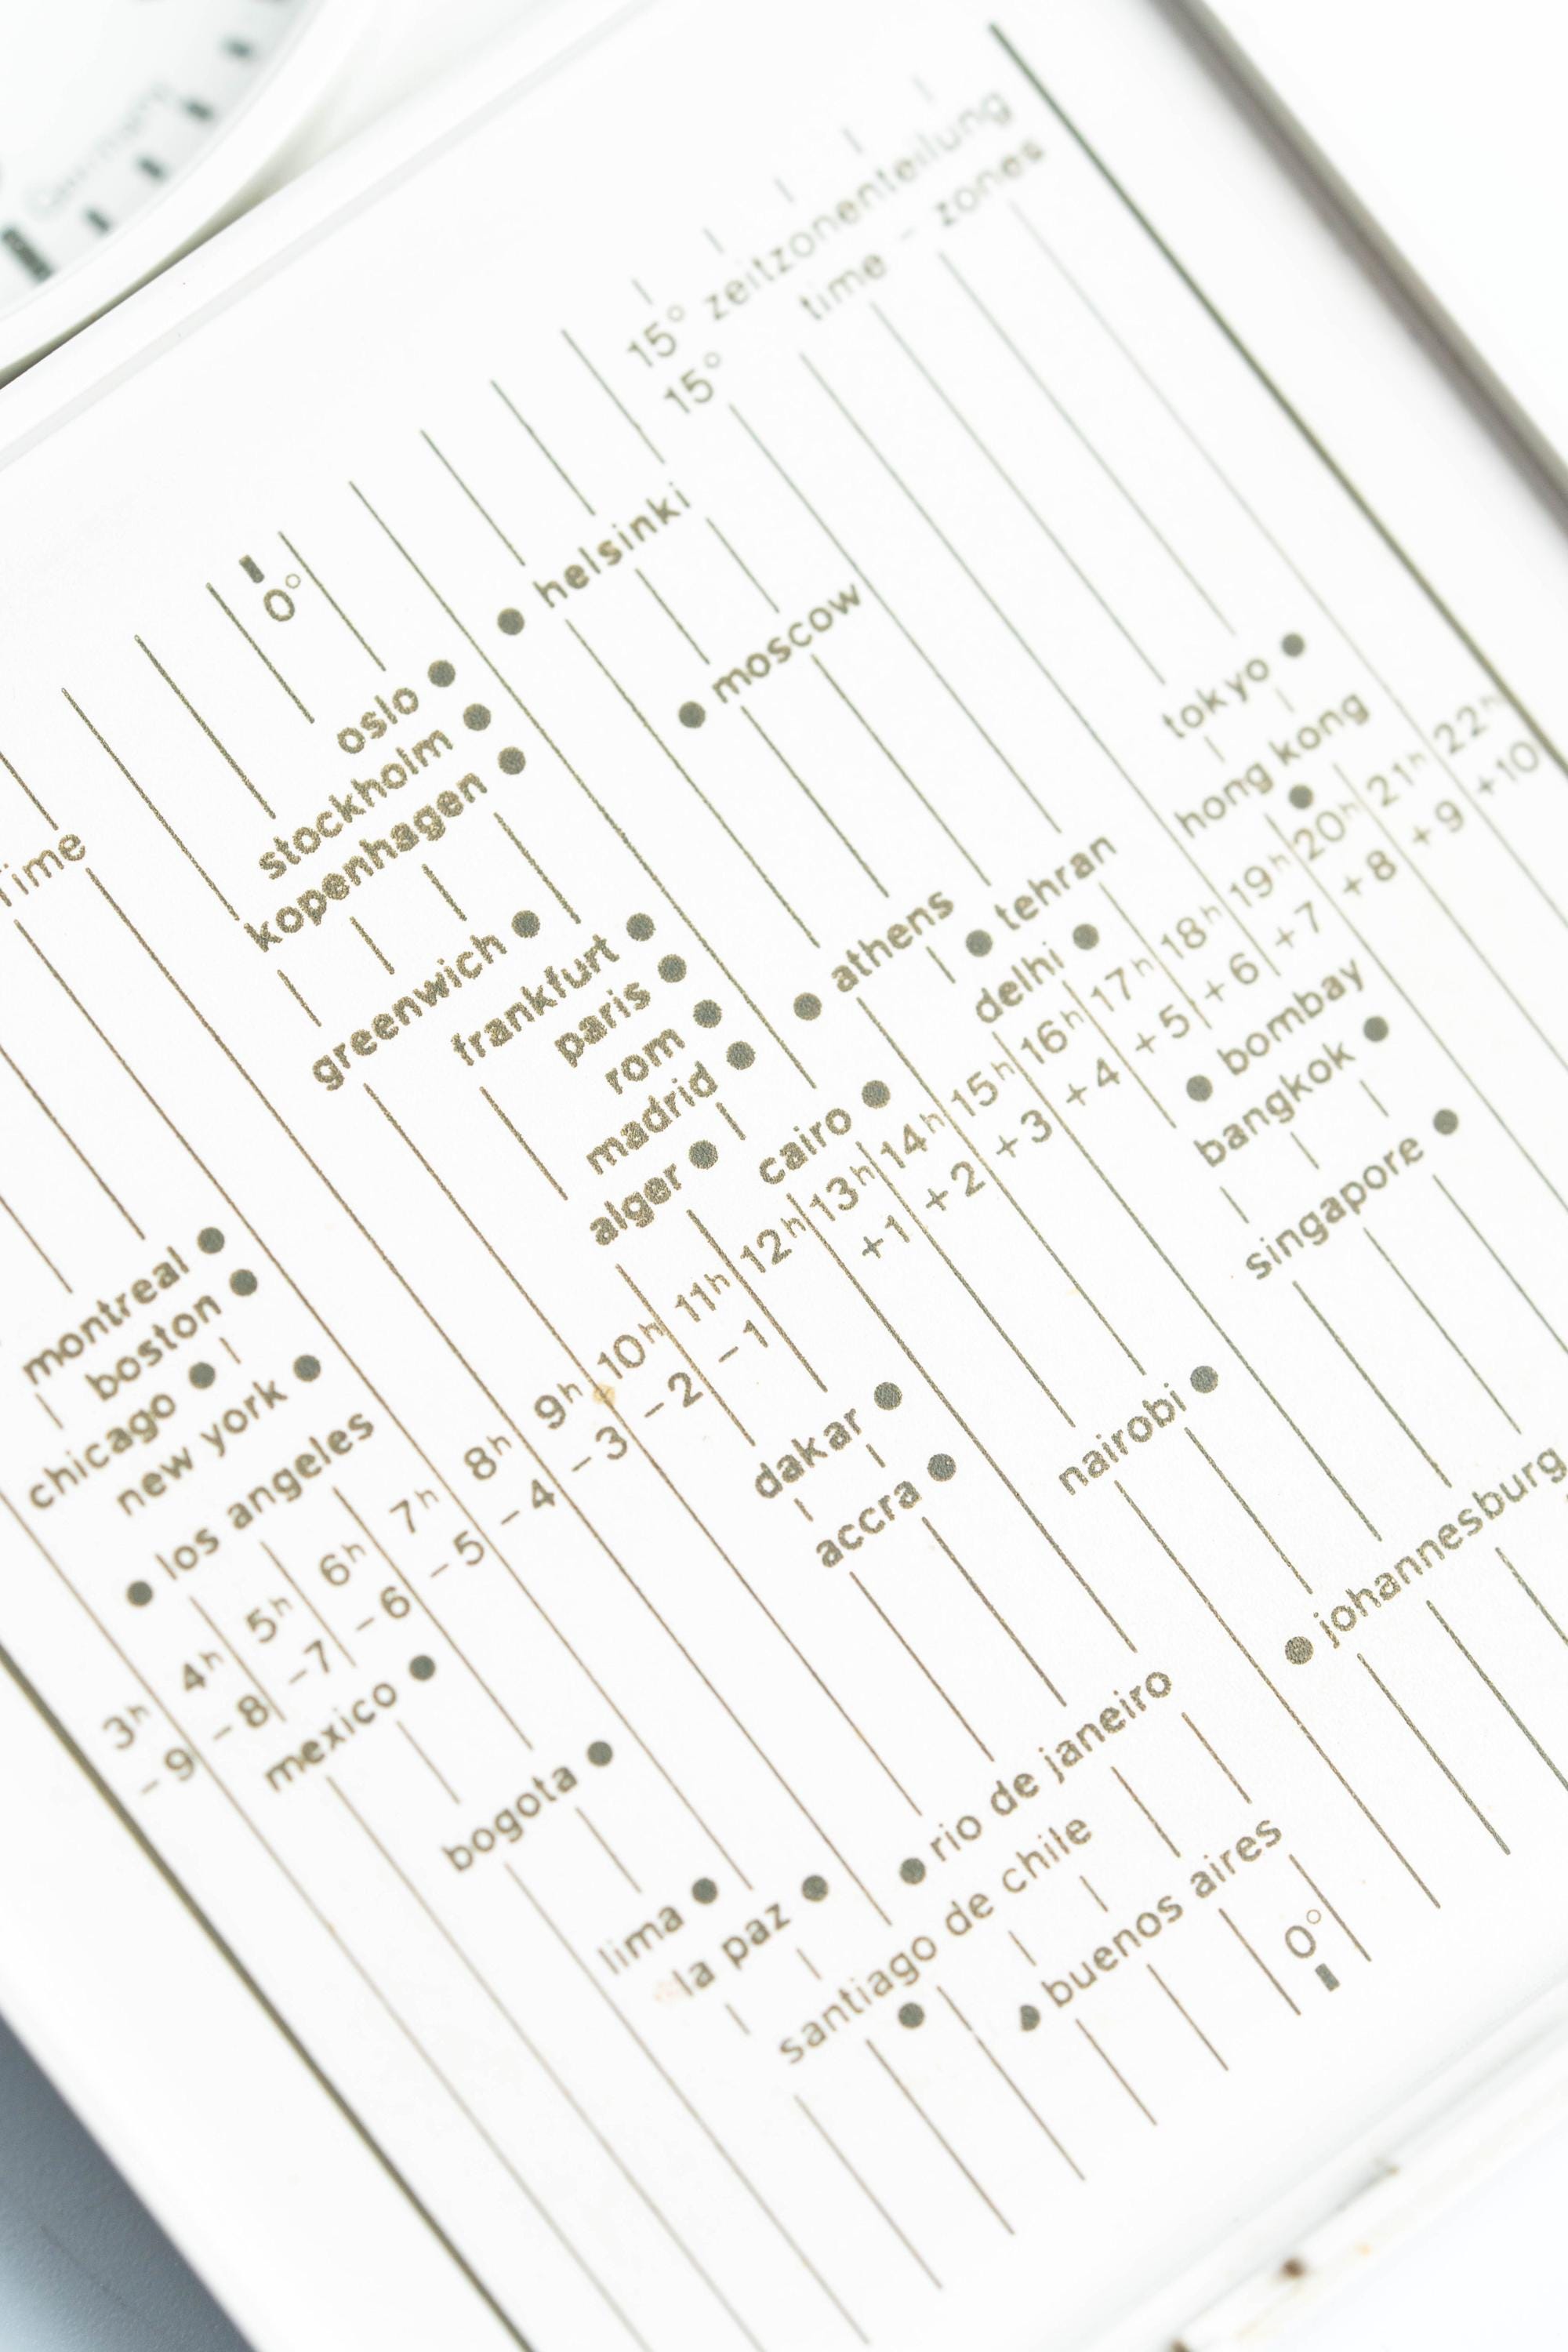 Germany
15° zeitzonenteilung
15° time - zones
0°
helsinki
moscow
oslo
stockholm
kopenhagen
time
tokyo
hong kong
greenwich
frankfurt
paris
rom
madrid
alger
athens
tehran
delhi
cairo
3h 4h 5h 6h 7h 8h 9h 10h 11h 12h 13h 14h 15h 16h 17h 18h 19h 20h 21h 22h
-9 -8 -7 -6 -5 -4 -3 -2 -1 +1 +2 +3 +4 +5 +6 +7 +8 +9 +10
bombay
bangkok
singapore
montreal
boston
chicago
new york
los angeles
mexico
bogota
lima
la paz
dakar
accra
nairobi
johannesburg
rio de janeiro
santiago de chile
buenos aires
0°